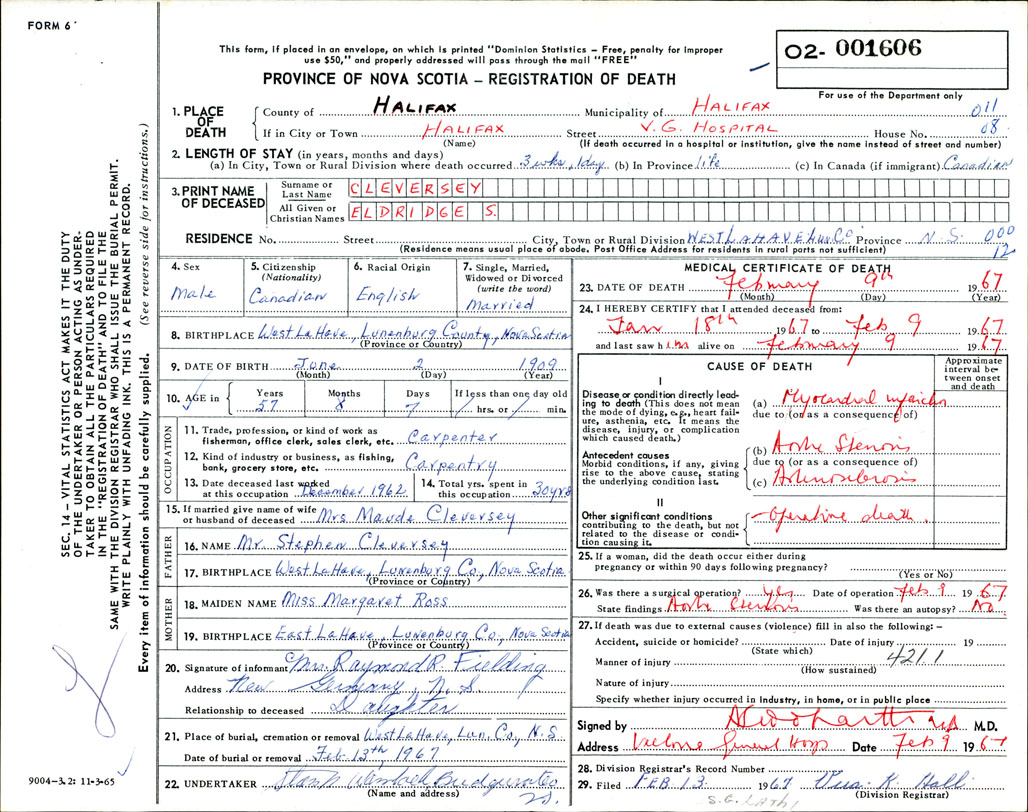 FORM 6
This form, if placed in an envelope, on which is printed "Dominion Statistics – Free, penalty for improper
use $50," and properly addressed will pass through the mail "FREE"
PROVINCE OF NOVA SCOTIA – REGISTRATION OF DEATH
O2- 001606
For use of the Department only
SEC. 14 – VITAL STATISTICS ACT MAKES IT THE DUTY
OF THE UNDERTAKER OR PERSON ACTING AS UNDER-
TAKER TO OBTAIN ALL THE PARTICULARS REQUIRED
IN THE "REGISTRATION OF DEATH" AND TO FILE THE
SAME WITH THE DIVISION REGISTRAR WHO SHALL ISSUE THE BURIAL PERMIT.
WRITE PLAINLY WITH UNFADING INK. THIS IS A PERMANENT RECORD.
Every item of information should be carefully supplied. (See reverse side for instructions.)
1. PLACE OF DEATH
County of HALIFAX Municipality of HALIFAX 011
If in City or Town HALIFAX Street V.G. HOSPITAL House No. 08
(Name) (If death occurred in a hospital or institution, give the name instead of street and number)
2. LENGTH OF STAY (in years, months and days)
(a) In City, Town or Rural Division where death occurred 3 wks, 1 day (b) In Province life (c) In Canada (if immigrant) Canadian
3. PRINT NAME OF DECEASED
Surname or Last Name CLEVERSEY
All Given or Christian Names ELDRIDGE S.
RESIDENCE No. Street City, Town or Rural Division WEST LAHAVE Lun Co Province N.S. 000
(Residence means usual place of abode. Post Office Address for residents in rural parts not sufficient) 12
4. Sex Male
5. Citizenship (Nationality) Canadian
6. Racial Origin English
7. Single, Married, Widowed or Divorced (write the word) Married
8. BIRTHPLACE West LaHave, Lunenburg County, Nova Scotia
(Province or Country)
9. DATE OF BIRTH June 2 1909
(Month) (Day) (Year)
10. AGE in Years Months Days If less than one day old
57 8 7 hrs. or min.
OCCUPATION
11. Trade, profession, or kind of work as
fisherman, office clerk, sales clerk, etc. Carpenter
12. Kind of industry or business, as fishing,
bank, grocery store, etc. Carpentry
13. Date deceased last worked
at this occupation December 1962
14. Total yrs. spent in
this occupation 30 yrs
15. If married give name of wife
or husband of deceased Mrs Maude Cleversey
FATHER
16. NAME Mr. Stephen Cleversey
17. BIRTHPLACE West LaHave, Lunenburg Co., Nova Scotia
(Province or Country)
MOTHER
18. MAIDEN NAME Miss Margaret Ross
19. BIRTHPLACE East LaHave, Lunenburg Co., Nova Scotia
(Province or Country)
20. Signature of informant Mrs. Raymond R. Fielding
Address New Germany, N.S.
Relationship to deceased Daughter
21. Place of burial, cremation or removal West LaHave, Lun. Co., N.S
Date of burial or removal Feb. 13th, 1967
22. UNDERTAKER Bridgewater
(Name and address) N.S.
MEDICAL CERTIFICATE OF DEATH
23. DATE OF DEATH February 9th 1967
(Month) (Day) (Year)
24. I HEREBY CERTIFY that I attended deceased from:
Jan 18th 1967 to Feb 9 1967
and last saw him alive on February 9 1967
CAUSE OF DEATH
Approximate interval between onset and death
I
Disease or condition directly leading to death (This does not mean
the mode of dying, e.g., heart failure, asthenia, etc. It means the
disease, injury, or complication
which caused death.)
(a) Myocardial
due to (or as a consequence of)
Antecedent causes
Morbid conditions, if any, giving
rise to the above cause, stating
the underlying condition last.
(b) Aortic Stenosis
due to (or as a consequence of)
(c)
II
Other significant conditions
contributing to the death, but not
related to the disease or condition causing it.
– Operative death.
25. If a woman, did the death occur either during
pregnancy or within 90 days following pregnancy?
(Yes or No)
26. Was there a surgical operation? yes Date of operation Feb 9 1967
State findings Aortic Stenosis Was there an autopsy? No
27. If death was due to external causes (violence) fill in also the following:–
Accident, suicide or homicide? Date of injury 19
(State which)
Manner of injury 421.1
(How sustained)
Nature of injury
Specify whether injury occurred in industry, in home, or in public place
Signed by M.D.
Address Victoria General Hosp Date Feb 9 1967
28. Division Registrar's Record Number
29. Filed FEB 13 1967
(Division Registrar)
9004–3.2: 11-3-65